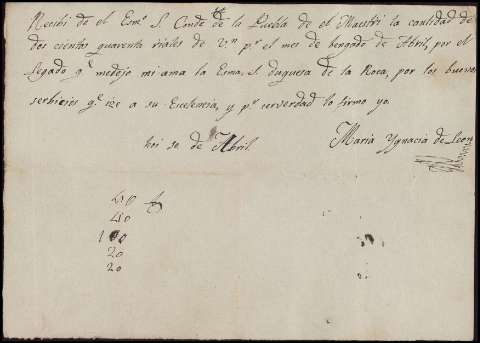 Recibi de el Esmᵒ S. Conde de la Puebla de el Maestri la cantidad de
dos cientos quarenta riales de vⁿ pʳ el mes de bengado de Abril, por el
legado qᵉ medejo mi ama la Esma. S. duquesa de la Roca, por los buenos
serbicios qᵉ ize a su Ecelencia, y pʳ cerverdad lo firmo yo
hoi 30 de Abril. Maria Ygnacia de Leon
40
40
100
20
20